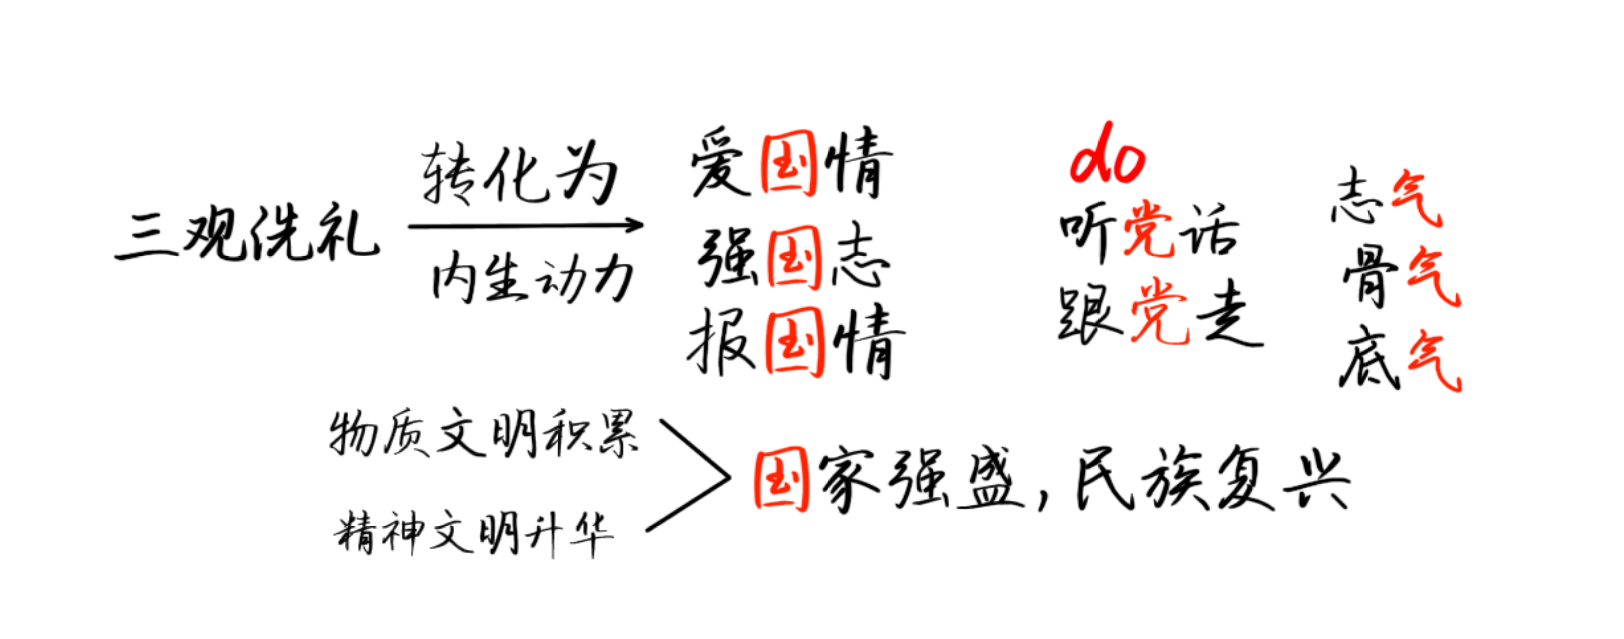 三观洗礼
转化为
内生动力
爱国情
强国志
报国情
do
听党话
跟党走
志气
骨气
底气
物质文明积累
精神文明升华
国家强盛,民族复兴